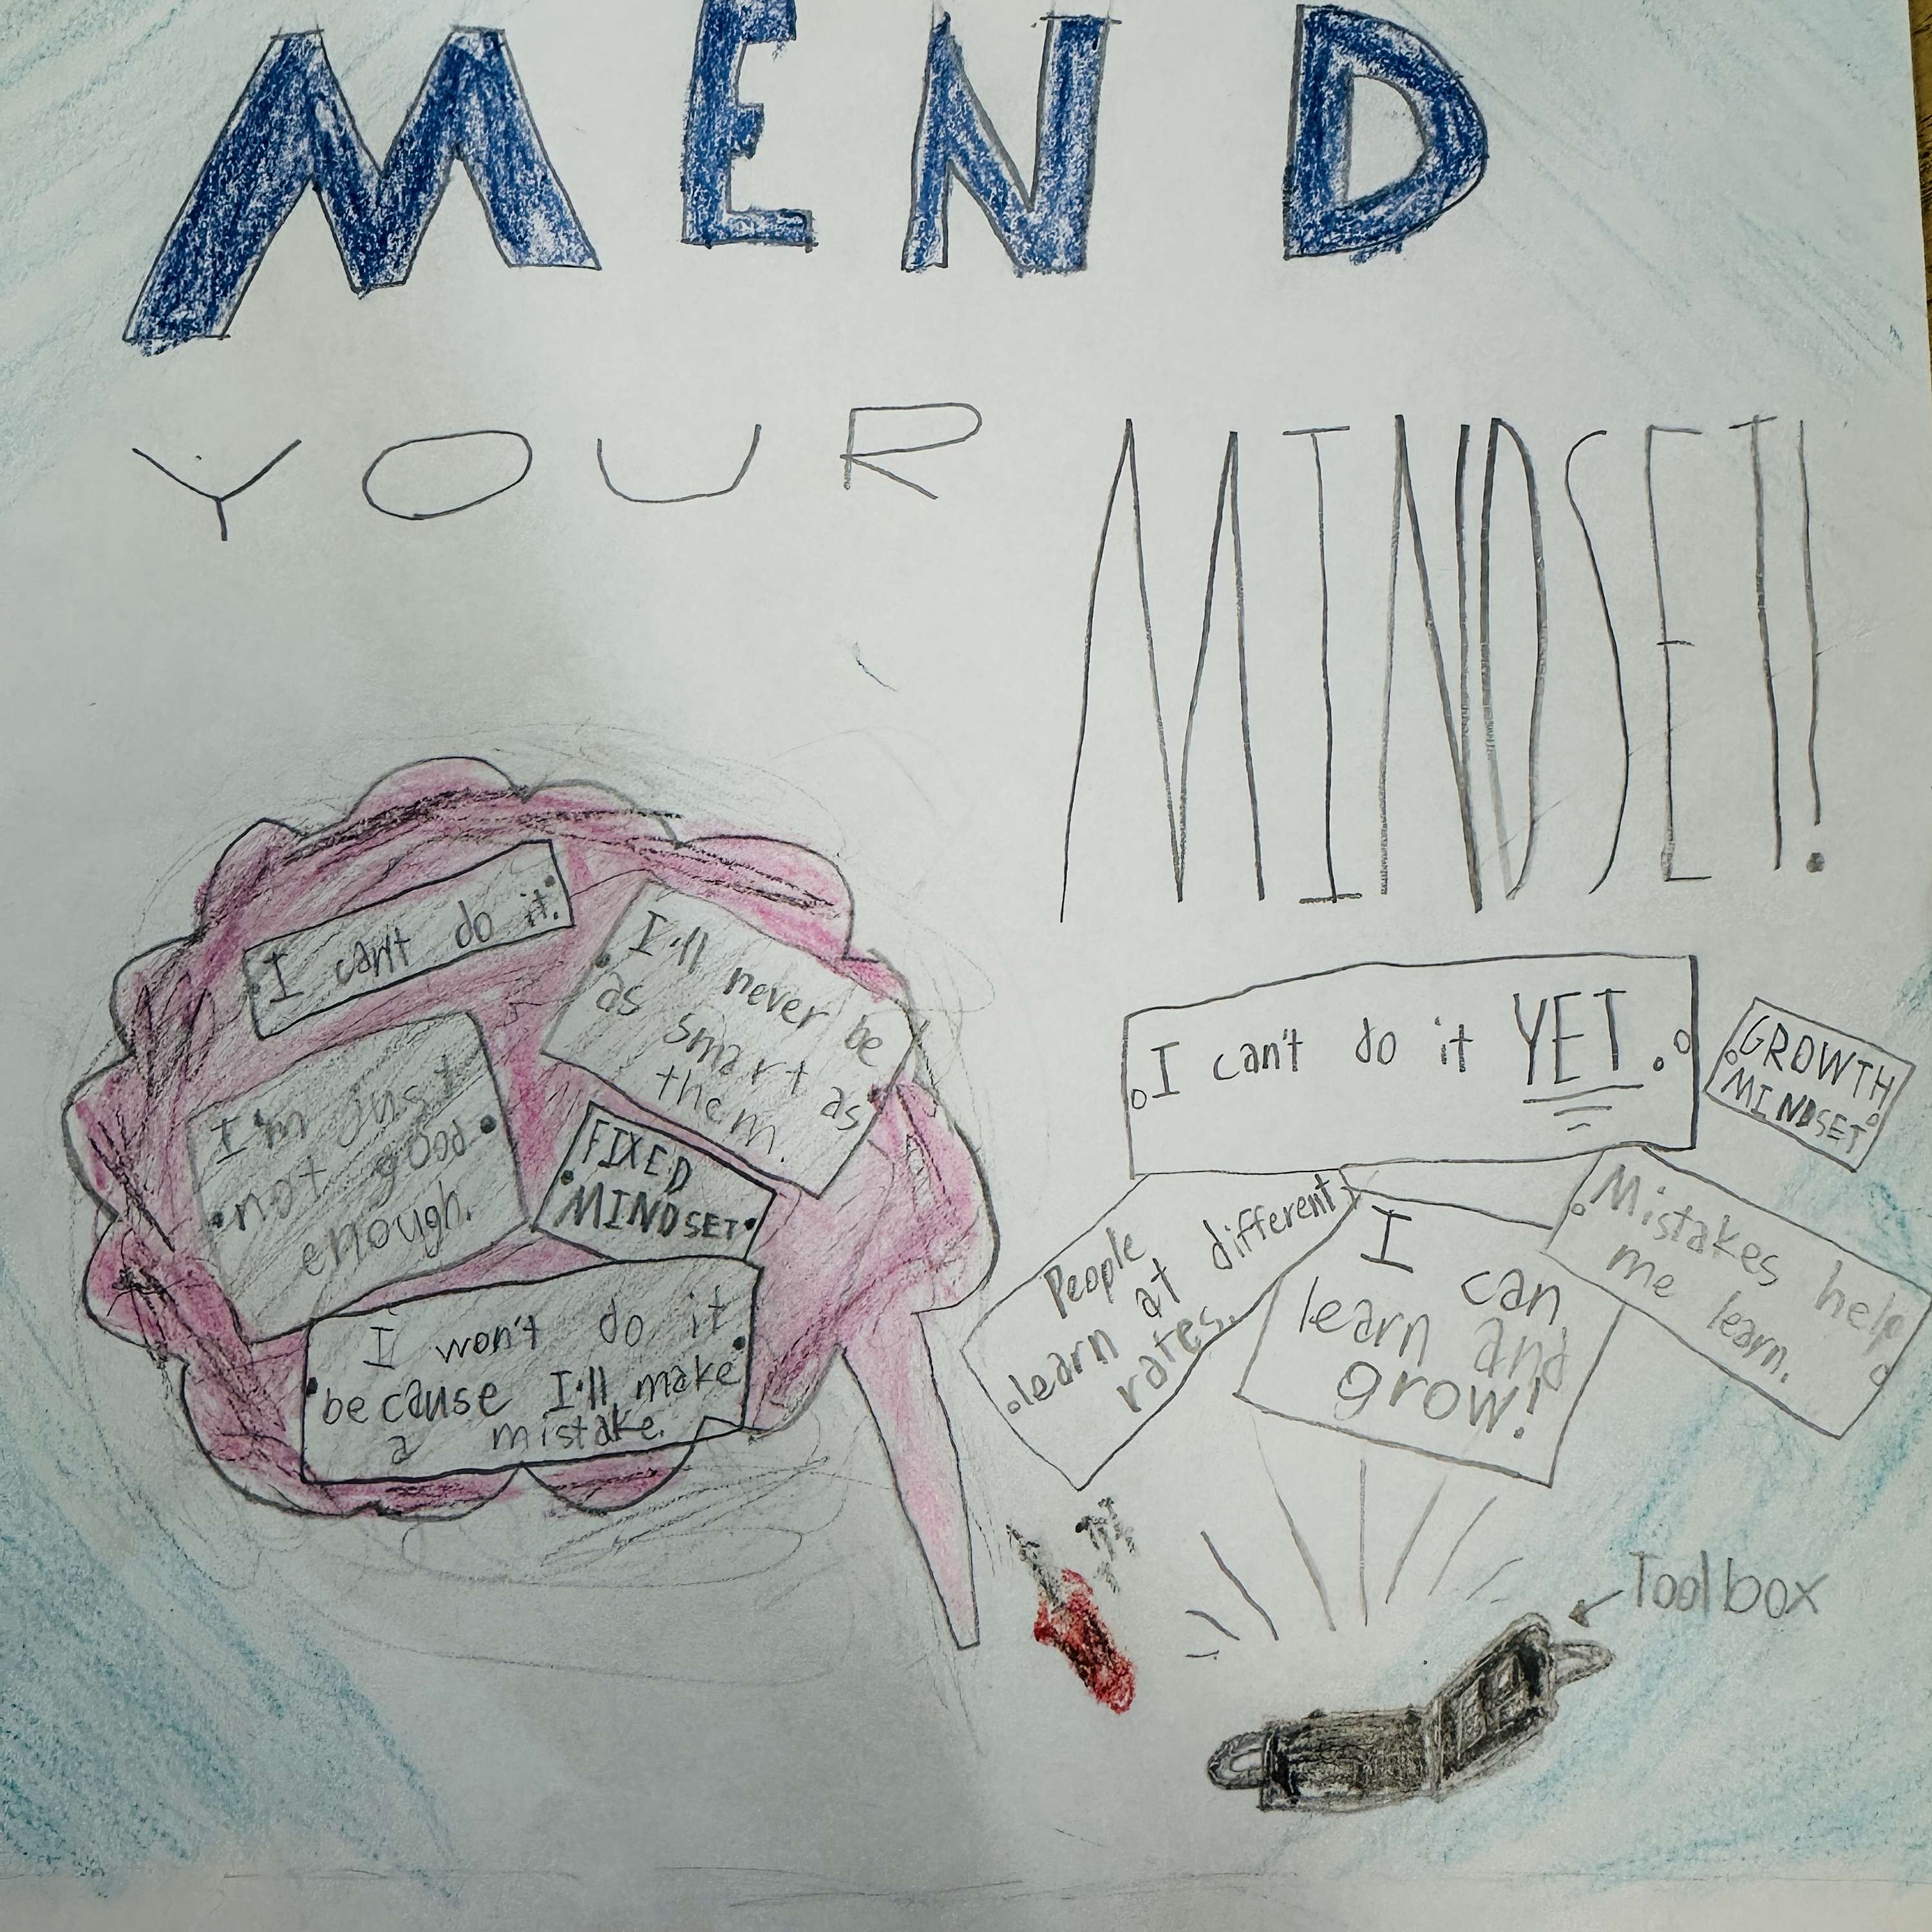 MEND
YOUR MINDSET!
I can't do it.
I'll never be
as smart as
them.
I'm just
not good
enough.
FIXED
MINDSET
I won't do it
because I'll make
a mistake.
I can't do it YET.
GROWTH
MINDSET
People
learn at different
rates.
I can
learn and
grow!
Mistakes help
me learn.
Toolbox